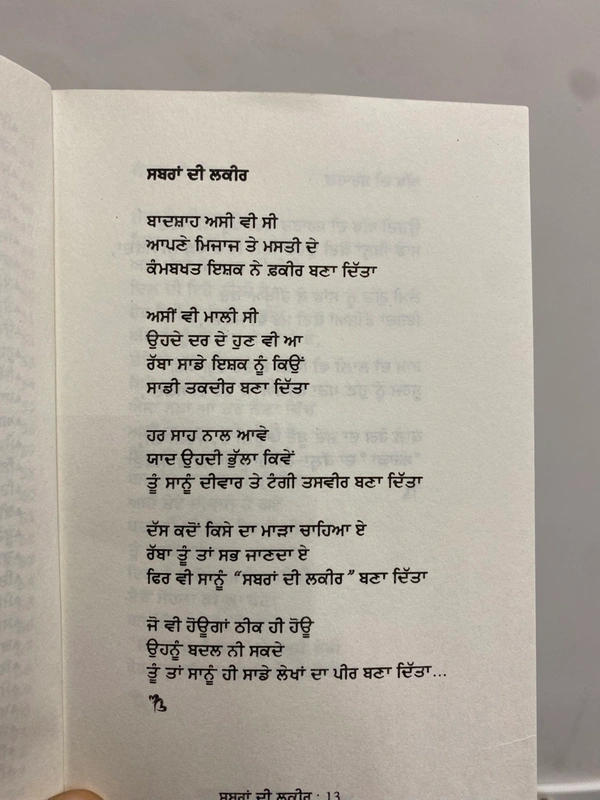 ਸਬਰਾਂ ਦੀ ਲਕੀਰ
ਬਾਦਸ਼ਾਹ ਅਸੀ ਵੀ ਸੀ
ਆਪਣੇ ਮਿਜਾਜ ਤੇ ਮਸਤੀ ਦੇ
ਕੰਮਬਖਤ ਇਸ਼ਕ ਨੇ ਫ਼ਕੀਰ ਬਣਾ ਦਿੱਤਾ
ਅਸੀਂ ਵੀ ਮਾਲੀ ਸੀ
ਉਹਦੇ ਦਰ ਦੇ ਹੁਣ ਵੀ ਆ
ਰੱਬਾ ਸਾਡੇ ਇਸ਼ਕ ਨੂੰ ਕਿਉਂ
ਸਾਡੀ ਤਕਦੀਰ ਬਣਾ ਦਿੱਤਾ
ਹਰ ਸਾਹ ਨਾਲ ਆਵੇ
ਯਾਦ ਉਹਦੀ ਭੁੱਲਾ ਕਿਵੇਂ
ਤੂੰ ਸਾਨੂੰ ਦੀਵਾਰ ਤੇ ਟੰਗੀ ਤਸਵੀਰ ਬਣਾ ਦਿੱਤਾ
ਦੱਸ ਕਦੋਂ ਕਿਸੇ ਦਾ ਮਾੜਾ ਚਾਹਿਆ ਏ
ਰੱਬਾ ਤੂੰ ਤਾਂ ਸਭ ਜਾਣਦਾ ਏ
ਫਿਰ ਵੀ ਸਾਨੂੰ “ਸਬਰਾਂ ਦੀ ਲਕੀਰ” ਬਣਾ ਦਿੱਤਾ
ਜੋ ਵੀ ਹੋਊਗਾਂ ਠੀਕ ਹੀ ਹੋਊ
ਉਹਨੂੰ ਬਦਲ ਨੀ ਸਕਦੇ
ਤੂੰ ਤਾਂ ਸਾਨੂੰ ਹੀ ਸਾਡੇ ਲੇਖਾਂ ਦਾ ਪੀਰ ਬਣਾ ਦਿੱਤਾ...
ਸਬਰਾਂ ਦੀ ਲਕੀਰ : 13